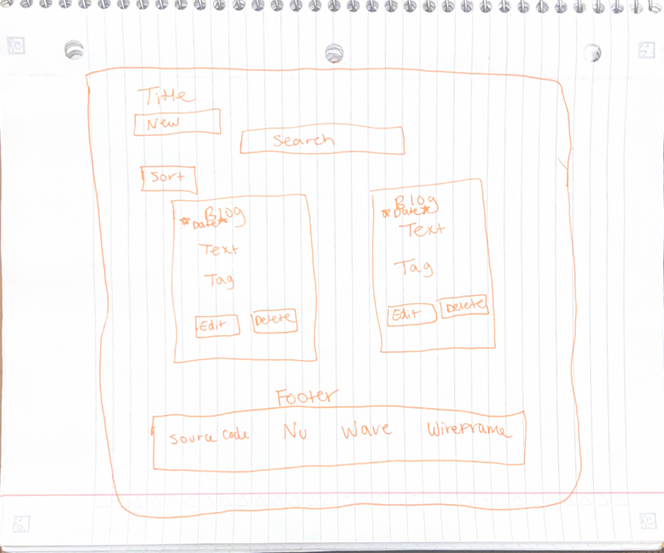 Title
New
Search
Sort
Blog
*Date*
Text
Tag
Edit Delete
Blog
*Date*
Text
Tag
Edit Delete
Footer
Source Code Nu Wave Wireframe